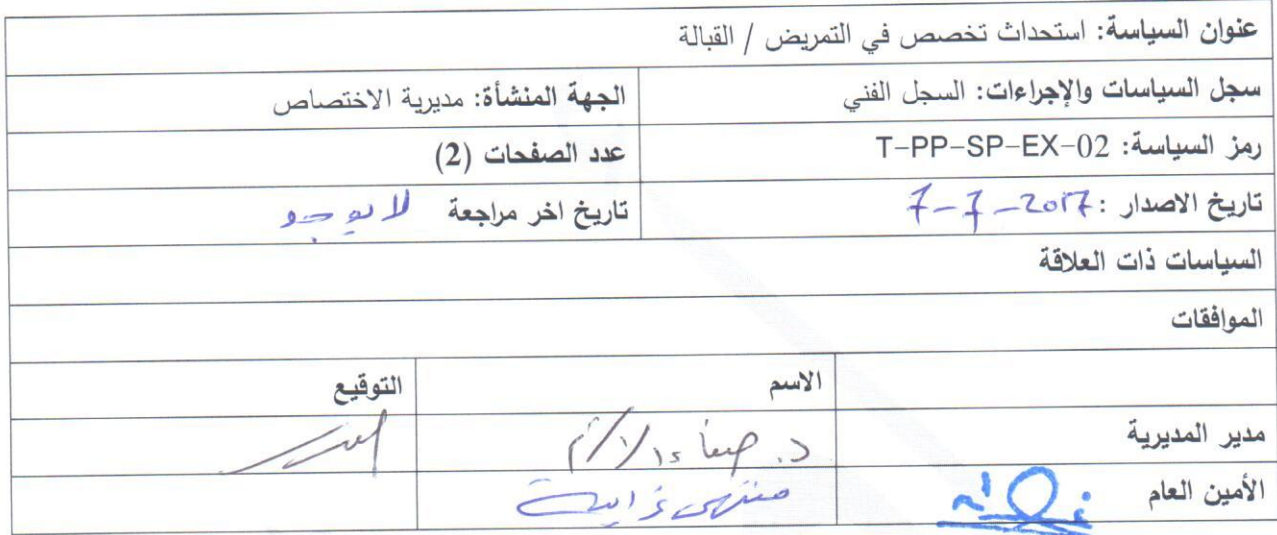 عنوان السياسة: استحداث تخصص في التمريض / القبالة
سجل السياسات والإجراءات: السجل الفني
الجهة المنشأة: مديرية الاختصاص
رمز السياسة: T-PP-SP-EX-02
عدد الصفحات (2)
تاريخ الاصدار: 7-7-2017
تاريخ اخر مراجعة لا يوجد
السياسات ذات العلاقة
الموافقات
الاسم
التوقيع
مدير المديرية
د.
الأمين العام
منتهى غرايبة